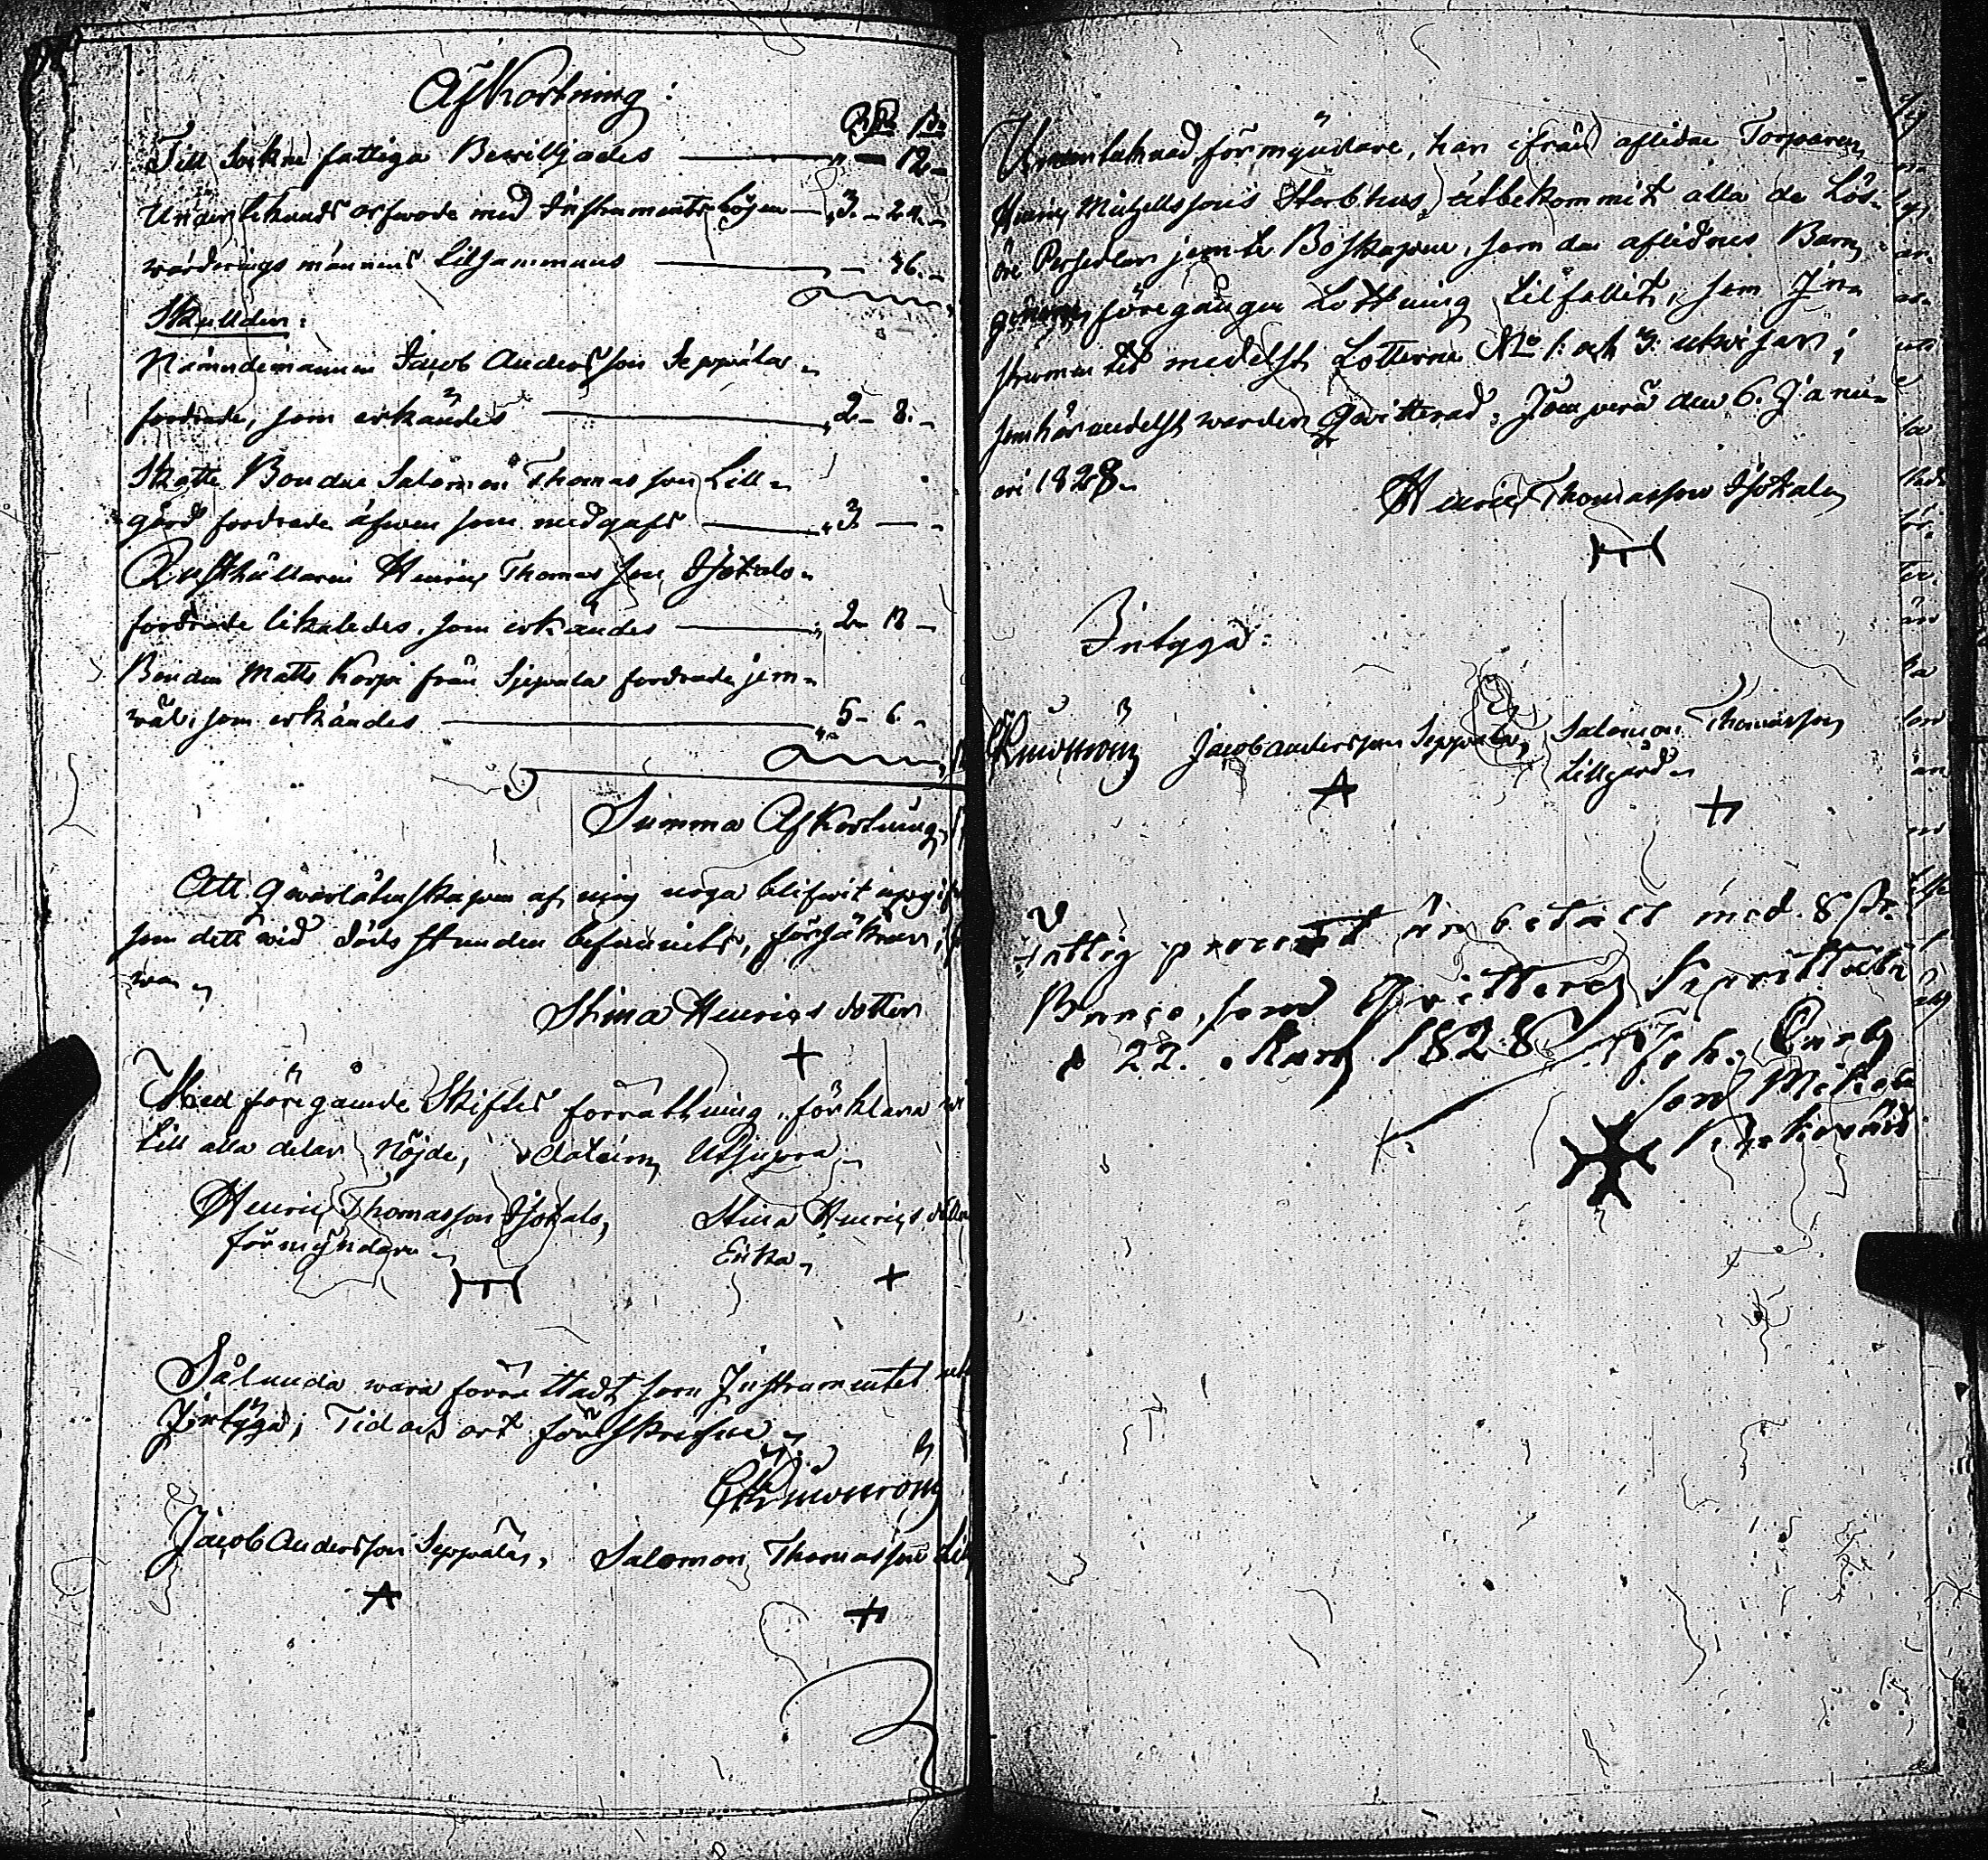 Afkortning:
RD ß
Till Sokne fattiga Bewilljades — „ — 12.
Underteknads arfwode med Instrumentsbögen — „3. — 24.
wärderings männens tilsammans — 36.
Skullden:
Nämndemannen Jacob Andersson Seppälä
fordrade, som erkändes — „2 — 8.
Skatte Bonden Salomon Thomasson Lill-
gård fordrade äfwen som medgafs — „3 —
Rusthållaren Henric Thomasson Isotalo
fordrade likaledes, som erkändes — „2
Bonden Matts Korpi från Seppälä fordrade jem-
wäl, som erkändes — „5 — 6.
Summa Afkortning
Att qwarlåtenskapen af mig noga blifwit
som dett wid döds stunden befunnits, försäkrar
Stina Henricsdotter
+
Med föregående Skiftes förrättning, förklara
till alla delar nöjde, datum Utsupra.
Henric Thomasson Isotalo,
förmyndare
Stina Henricsdotter
Enka
+
Sålunda wara förrättadt som Instrumentet
Intyga; Tid och ort förskrefne
Jacob Andersson Seppälä, Salomon Thomasson
A +
Undertecknad förmyndare, har ifrån aflidne Torparen
Henric Michellssons Sterbhus, utbekommit alla de Lös-
öre Persedlar jemte Boskapen, som den aflidnes Barn
genom föregången Lottning tilfallit, som In-
strumentet medelst Lotterne No 1: och 3: utwisar;
som härmedelst warder Qvitterad. Jomperä den 6. Janu-
ari 1828.
Henric Thomasson Isotalo
Intyga:
Jacob Andersson Seppälä, Salomon Thomasson
Lillgård
A +
fattig procent är betalt med 8 ß
Banco, som Qvitteras
d 22. Mars 1828 Joh: Carls
son